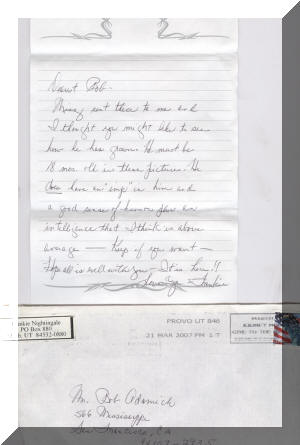 Dearest Bob -
Missy sent these to me and
I thought you might like to see
how he has grown. He must be
18 mos. old in these pictures. He
does have an "imp" in him and
a good sense of humor plus an
intelligence that I think is above
average — Keep if you want —
Hope all is well with you - It is here!!
Love
Frankie
Nightingale
PO Box 880
UT 84532-0880
PROVO UT 846
21 MAR 2007 PM 1 T
Mr. Bob
566 Mississippi
San Francisco, CA